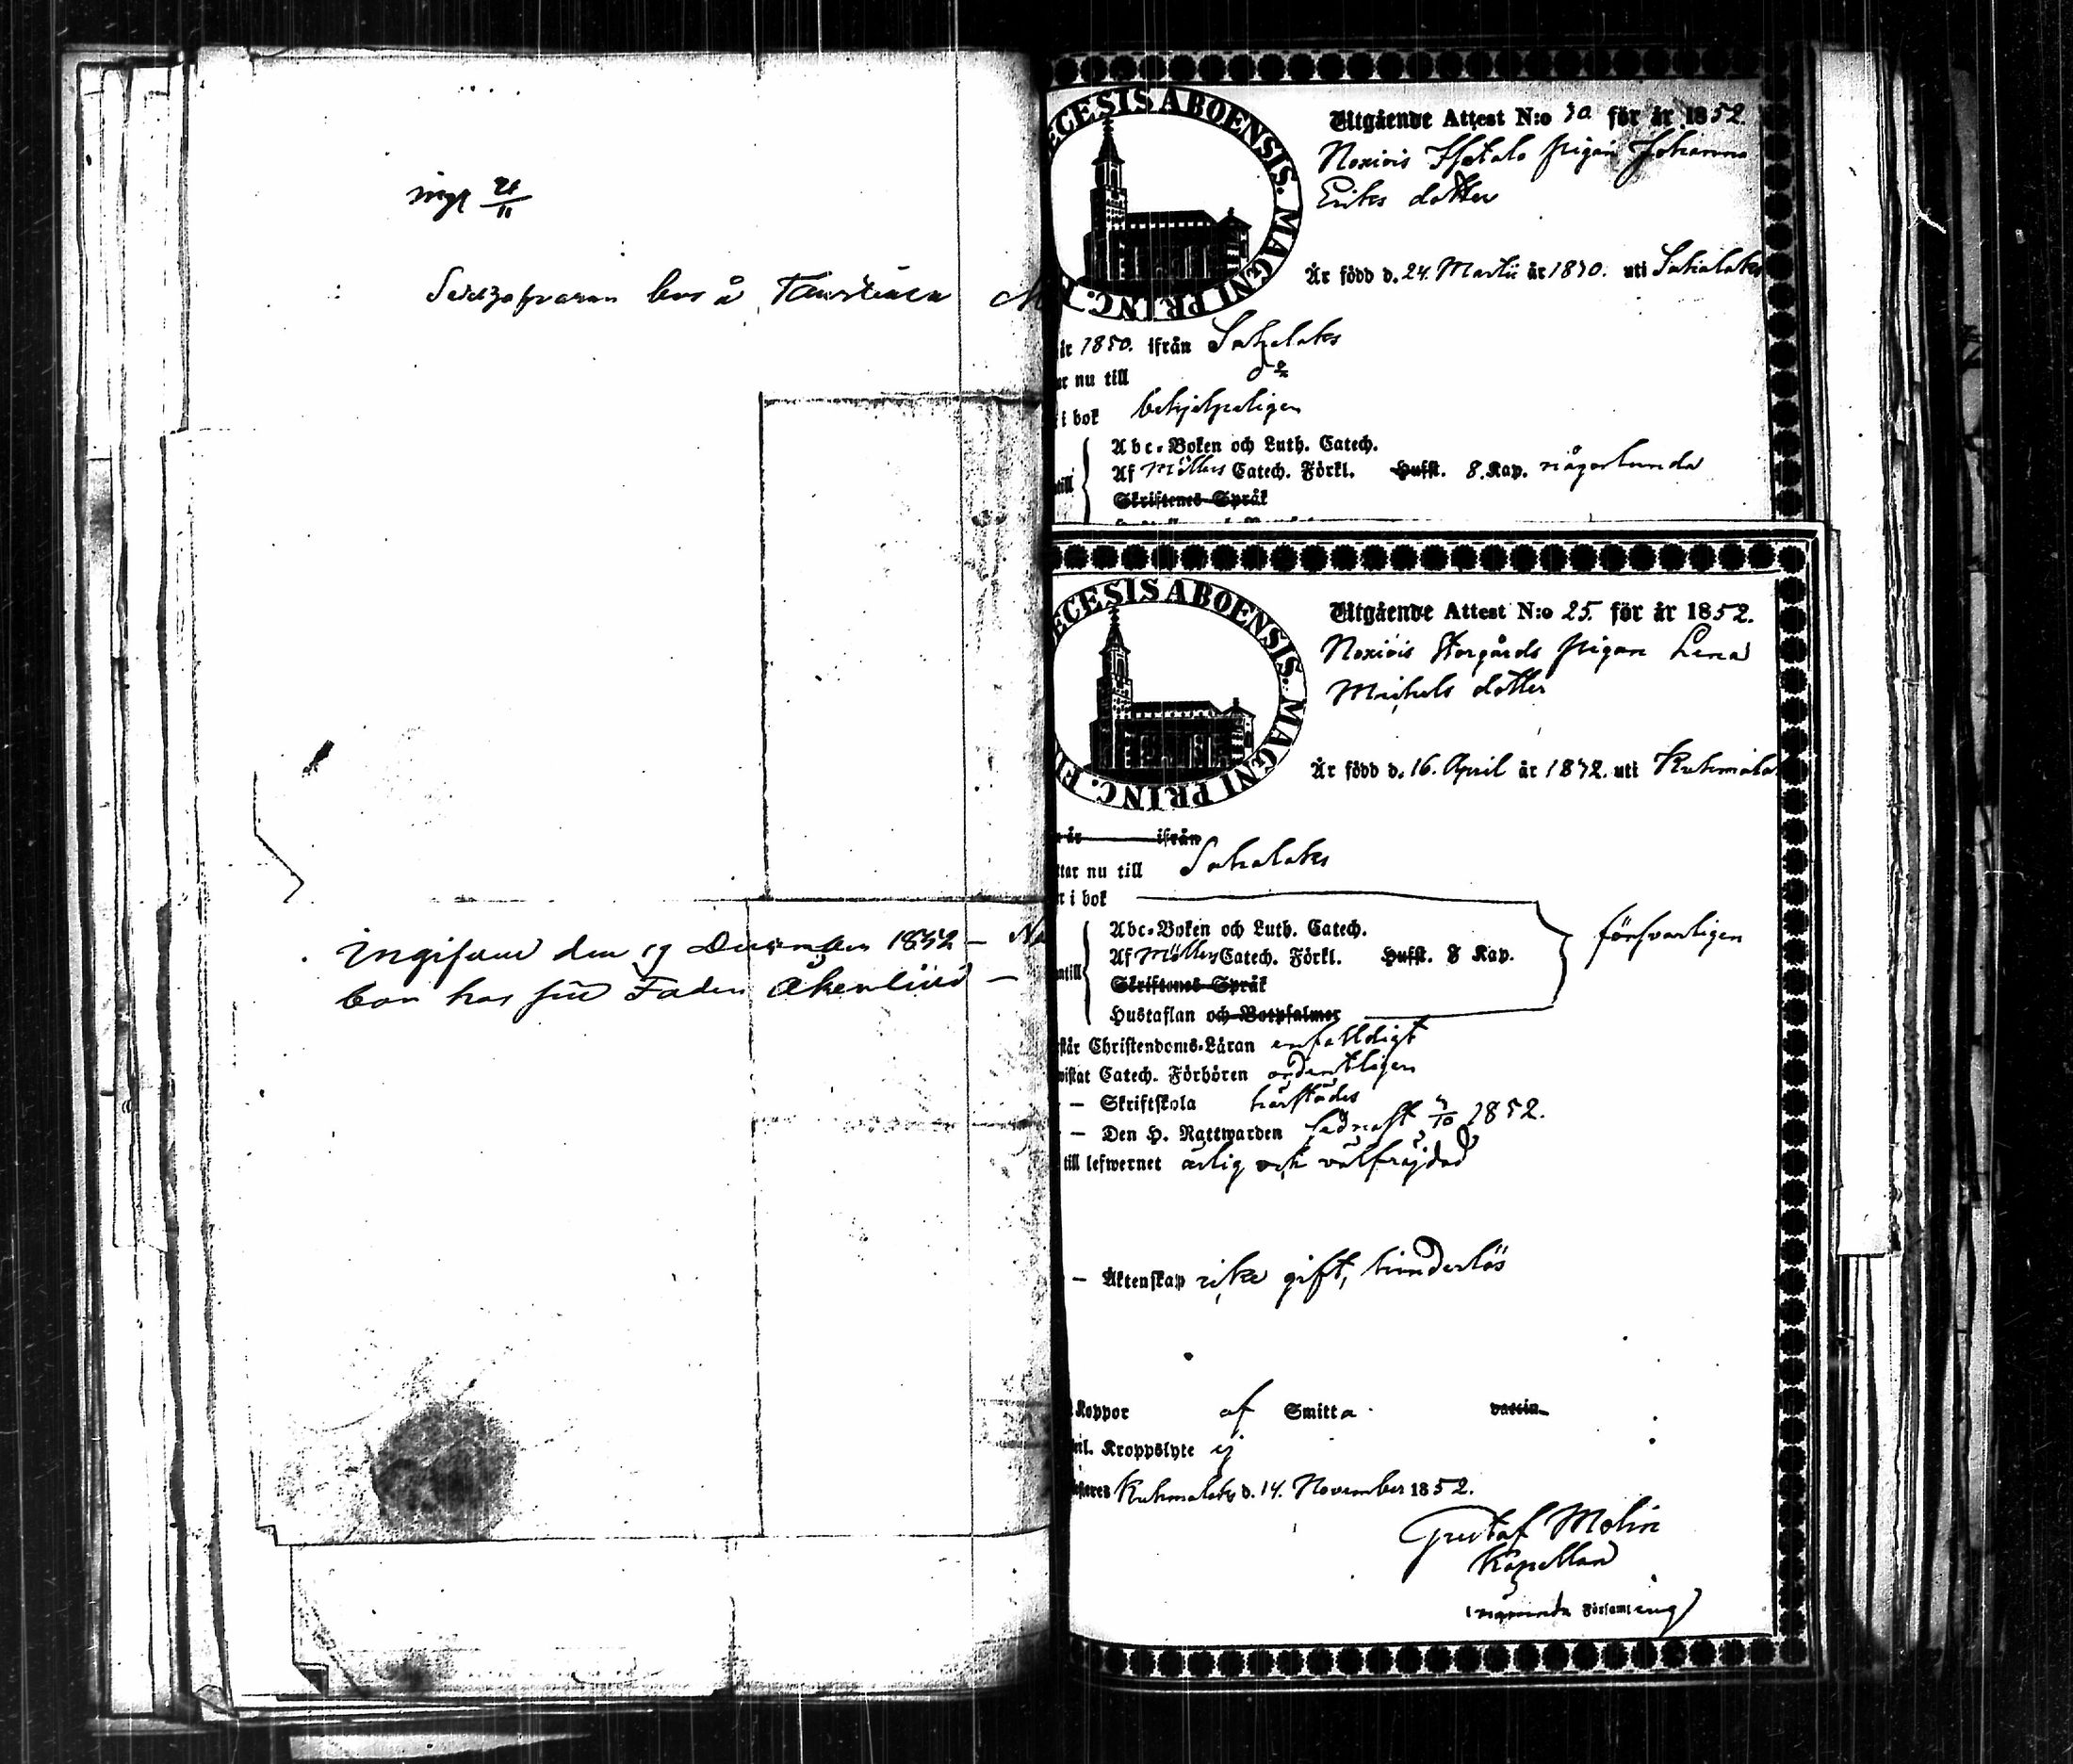 ingt 21/11
bor å
M
ingifven den 17 December 1852 – No
bor hos sin Fader Åkerlind –
ECESIS ABOENSIS. MAGNI PRINC. F
Utgående Attest N:o 30 för år 1852.
Noxiois pigan Johanna
Eriks dotter
Är född d. 24. Martii år 1830. uti Sahalaks
år 1850. ifrån Sahalaks
ar nu till do
i bok behjelpeligen
Abc-Boken och Luth. Catech.
Af Möllers Catech. Förkl. Husst. 8. Kap. någorlunda
ntill
Skriftenes Språk
ECESIS ABOENSIS. MAGNI PRINC. FI
Utgående Attest N:o 25. för år 1852.
Noxiois Storgårds pigan Lena
Michels dotter
Är född d. 16. April år 1832. uti Kuhmala
år ifrån
ttar nu till Sahalaks
r i bok
Abc-Boken och Luth. Catech.
försvarligen
Af Möllers Catech. Förkl. Husst. 8 Kap.
ntill
Skriftenes Språk
Hustaflan och Botpsalmer
står Christendoms-Läran enfaldigt
wistat Catech. Förhören ordentligen
– Skriftskola härstädes
– Den H. Nattwarden sednast 3/10 1852.
till lefwernet ärlig och välfräjdad
– Äktenskap icke gift, hinderlös
Koppor af Smitta vaccin
nl. Kroppslyte ej
esteres Kuhmalaks d. 14. November 1852.
Gustaf Molin
Kapellan
(nämnda Församling)